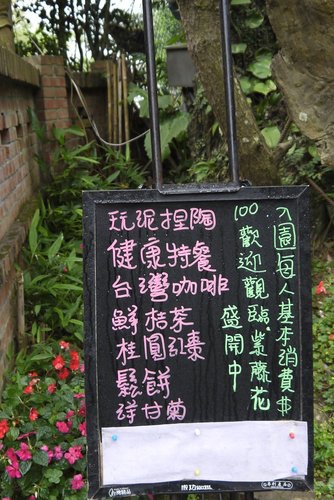 玩泥捏陶
健康特餐
台灣咖啡
鮮桔茶
桂圓紅棗
鬆餅
洋甘菊
入園每人基本消費$
100.歡迎觀臨.紫藤花
盛開中